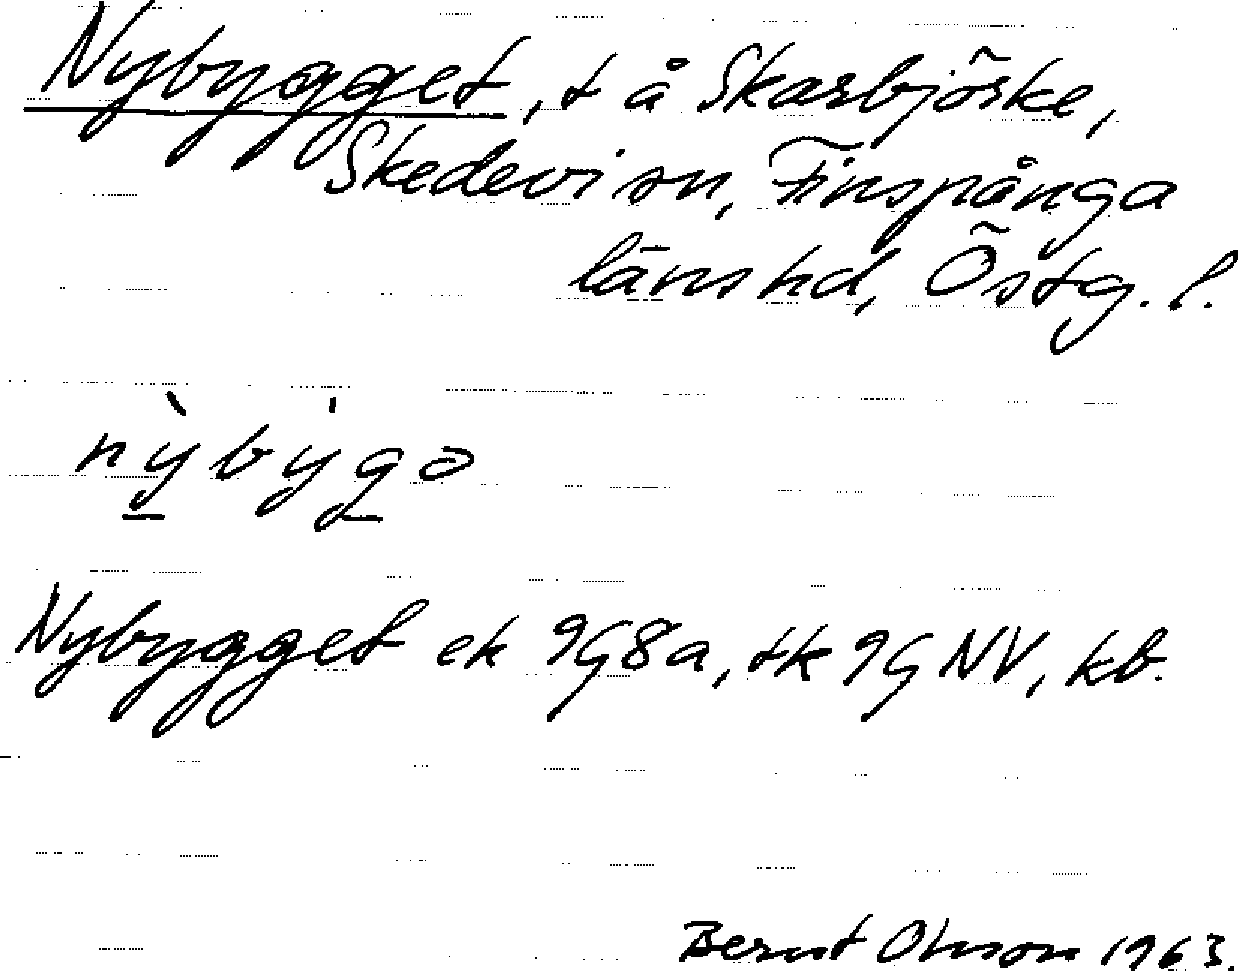 Nybygget, t å Skarbjörke,
Skedevi sn, Finspånga
länshd, Östg. l.
nỳbýgə
Nybygget ek 9G8a, tk 9G NV, kb.
Bernt Olsson 1963.